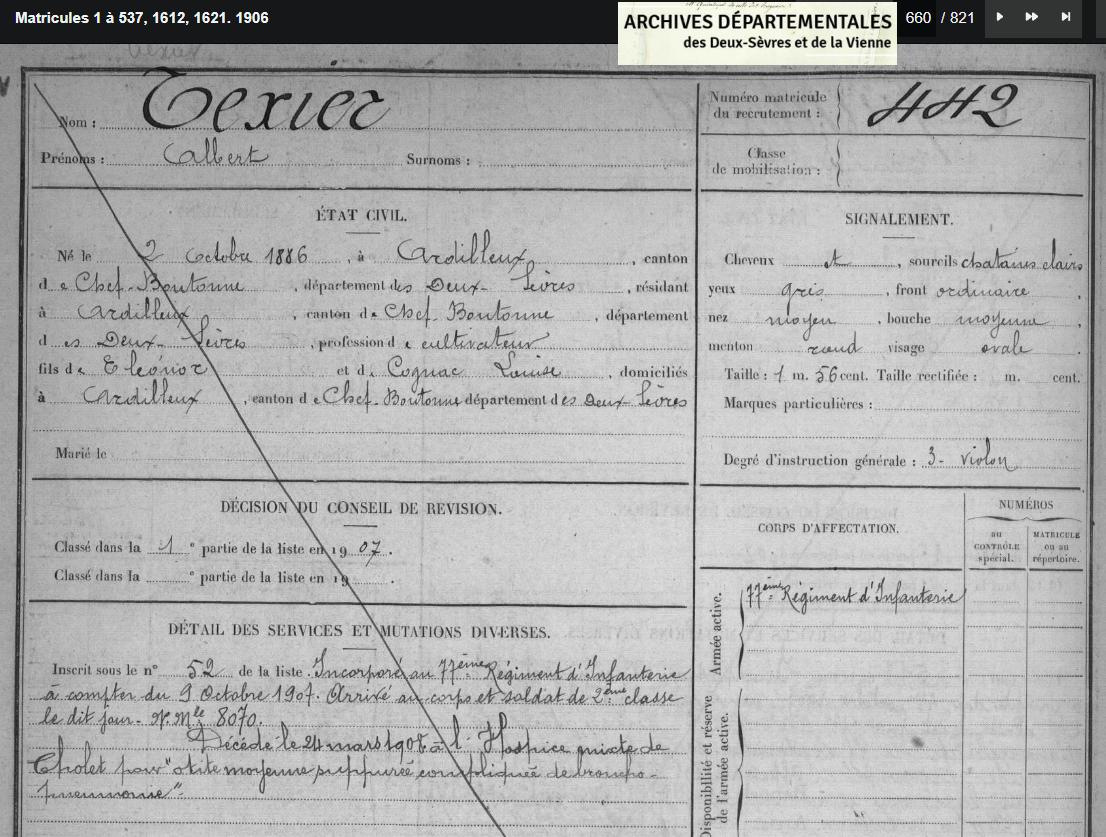 Matricules 1 à 537, 1612, 1621. 1906
ARCHIVES DÉPARTEMENTALES
des Deux-Sèvres et de la Vienne
660 / 821
Nom : Texier
Prénoms : Albert Surnoms :
Numéro matricule du recrutement : 442
Classe de mobilisation :
ÉTAT CIVIL.
Né le 2 Octobre 1886, à Ardilleux, canton
de Chef-Boutonne, département des Deux-Sèvres, résidant
à Ardilleux, canton de Chef-Boutonne, département
des Deux-Sèvres, profession de cultivateur
fils de Eléonor et de Cognac Louise, domiciliés
à Ardilleux, canton de Chef-Boutonne département des Deux-Sèvres
Marié le
SIGNALEMENT.
Cheveux et, sourcils chatains clairs
yeux gris, front ordinaire,
nez moyen, bouche moyenne,
menton rond visage ovale.
Taille : 1 m. 56 cent. Taille rectifiée : m. cent.
Marques particulières :
Degré d'instruction générale : 3- violon
DÉCISION DU CONSEIL DE REVISION.
Classé dans la 1e partie de la liste en 1907.
Classé dans la e partie de la liste en 19 .
CORPS D'AFFECTATION.
NUMÉROS
au CONTRÔLE spécial.
MATRICULE ou au répertoire.
Armée active.
77ème Régiment d'Infanterie
Disponibilité et réserve de l'armée active.
DÉTAIL DES SERVICES ET MUTATIONS DIVERSES.
Inscrit sous le n° 52 de la liste. Incorporé au 77ème Régiment d'Infanterie
à compter du 9 Octobre 1907. Arrivé au corps et soldat de 2ème classe
le dit jour. N° Mle 8070.
Décédé le 24 mars 1908 à l'Hospice mixte de
Cholet pour "otite moyenne suppurée compliquée de broncho-
pneumonie".